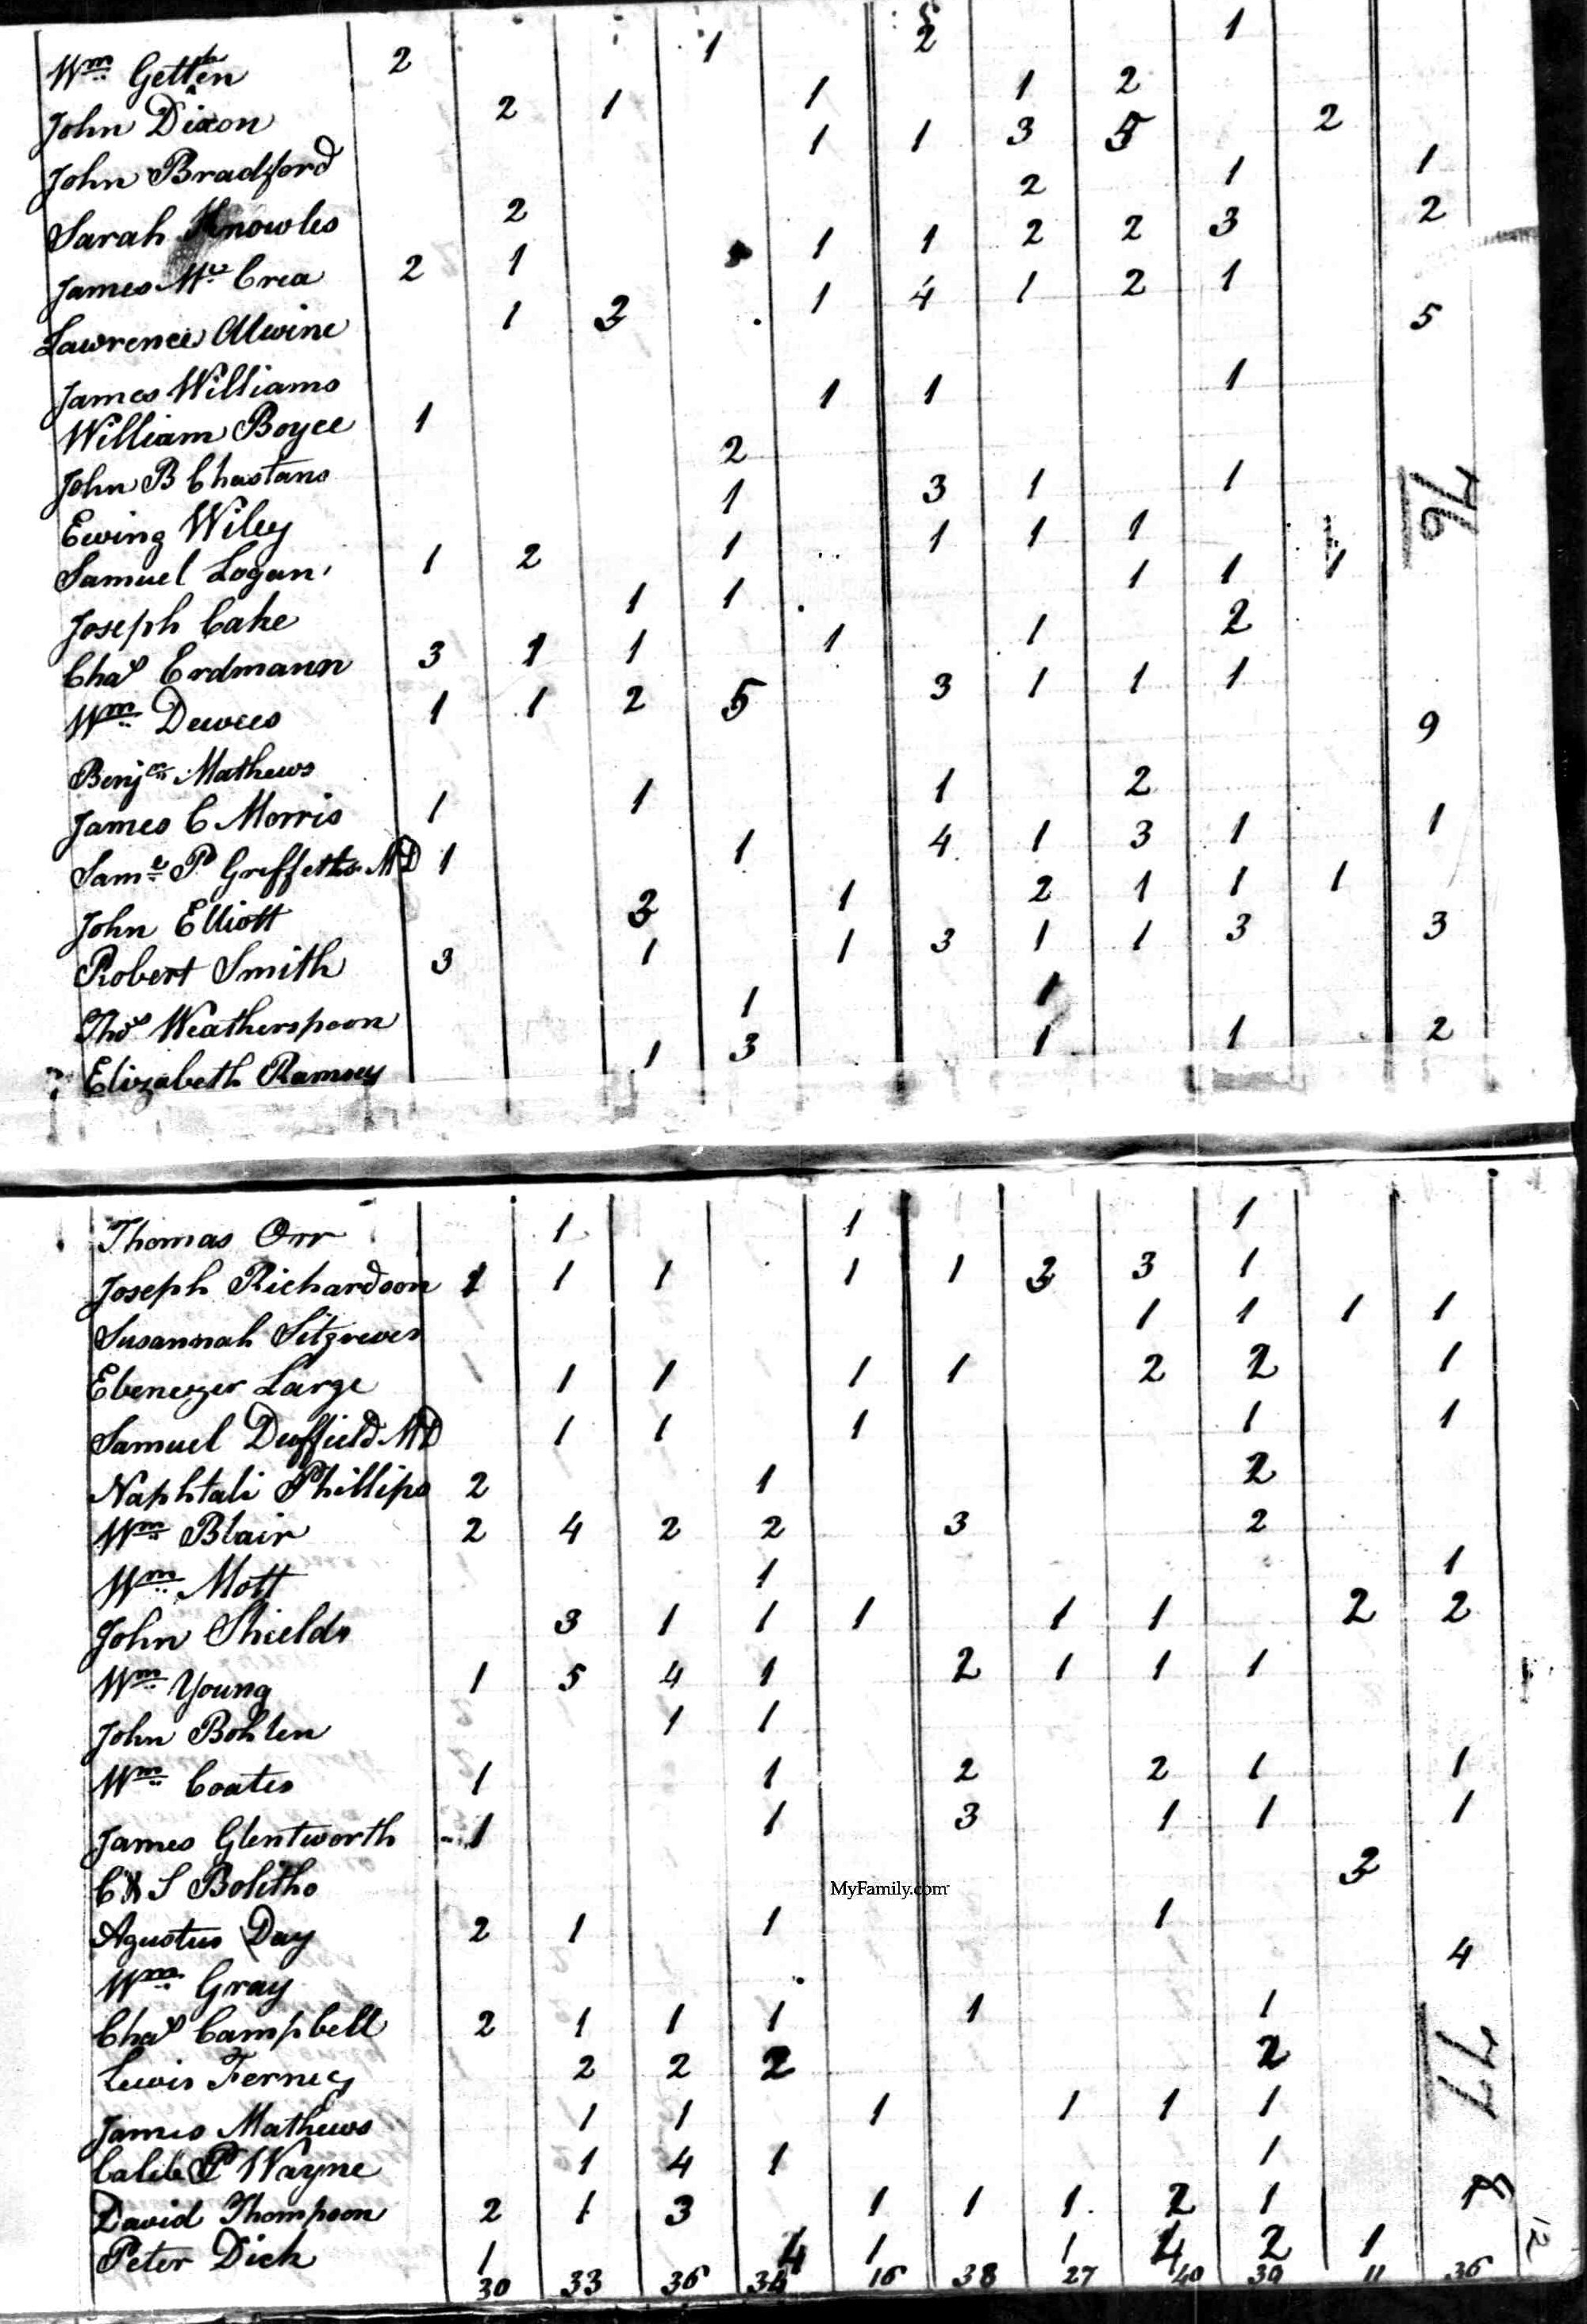 Wm Getten 2 1 2 1
John Dixon 2 1 1 1 2
John Bradford 1 1 3 5 2
Sarah Knowles 2 2 1 1
James Mc Crea 2 1 1 1 2 2 3 2
Lawrence Alwine 1 3 1 4 1 2 1
James Williams 5
William Boyce 1 1 1 1
John B Chastans 2
Ewing Wiley 1 3 1 1
Samuel Logan 1 2 1 1 1 1
Joseph Cake 1 1 1 1 1
Chas Erdmann 3 1 1 1 1 2
Wm Dewees 1 1 2 5 3 1 1 1
Benjn Mathews 9
James C Morris 1 1 1 2
Saml P Griffetts MD 1 1 4 1 3 1 1
John Elliott 3 1 2 1 1 1
Robert Smith 3 1 1 3 1 1 3 3
Thos Weatherspoon 1 1
Elizabeth Ramsey 1 3 1 1 2
76
Thomas Orr 1 1 1
Joseph Richardson 1 1 1 1 1 3 3 1
Susannah Sitgreves 1 1 1 1
Ebenezer Large 1 1 1 1 2 2 1
Samuel Duffield MD 1 1 1 1 1
Naphtali Phillips 2 1 2
Wm Blair 2 4 2 2 3 2
Wm Mott 1 1
John Shields 3 1 1 1 1 1 2 2
Wm Young 1 5 4 1 2 1 1 1
John Bohlen 1 1
Wm Coates 1 1 2 2 1 1
James Glentworth 1 1 3 1 1 1
C & S Bolitho 3
MyFamily.com
Agustus Day 2 1 1 1
Wm Gray 4
Chas Campbell 2 1 1 1 1 1
Lewis Ferney 2 2 2 2
James Mathews 1 1 1 1 1 1
Caleb P Wayne 1 4 1 1
77
David Thompson 2 1 3 1 1 1 2 1
Peter Dick 1 4 1 1 4 2 1
30 33 36 34 16 38 27 40 39 11 36
12